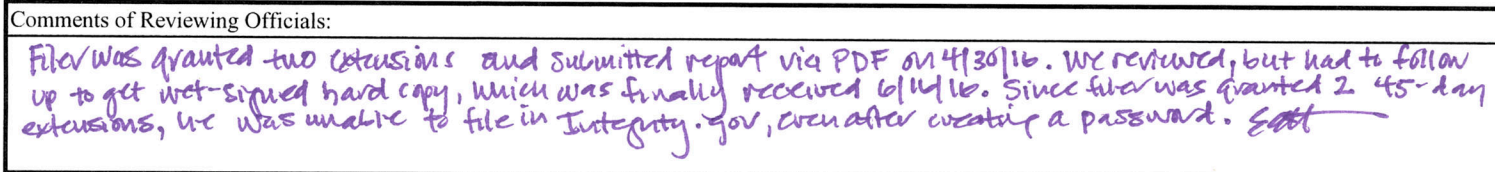 Comments of Reviewing Officials:
Filer was granted two extensions and submitted report via PDF on 4/30/16. We reviewed, but had to follow
up to get wet-signed hard copy, which was finally received 6/16/16. Since filer was granted 2 45-day
extensions, he was unable to file in Integrity.gov, even after creating a password.